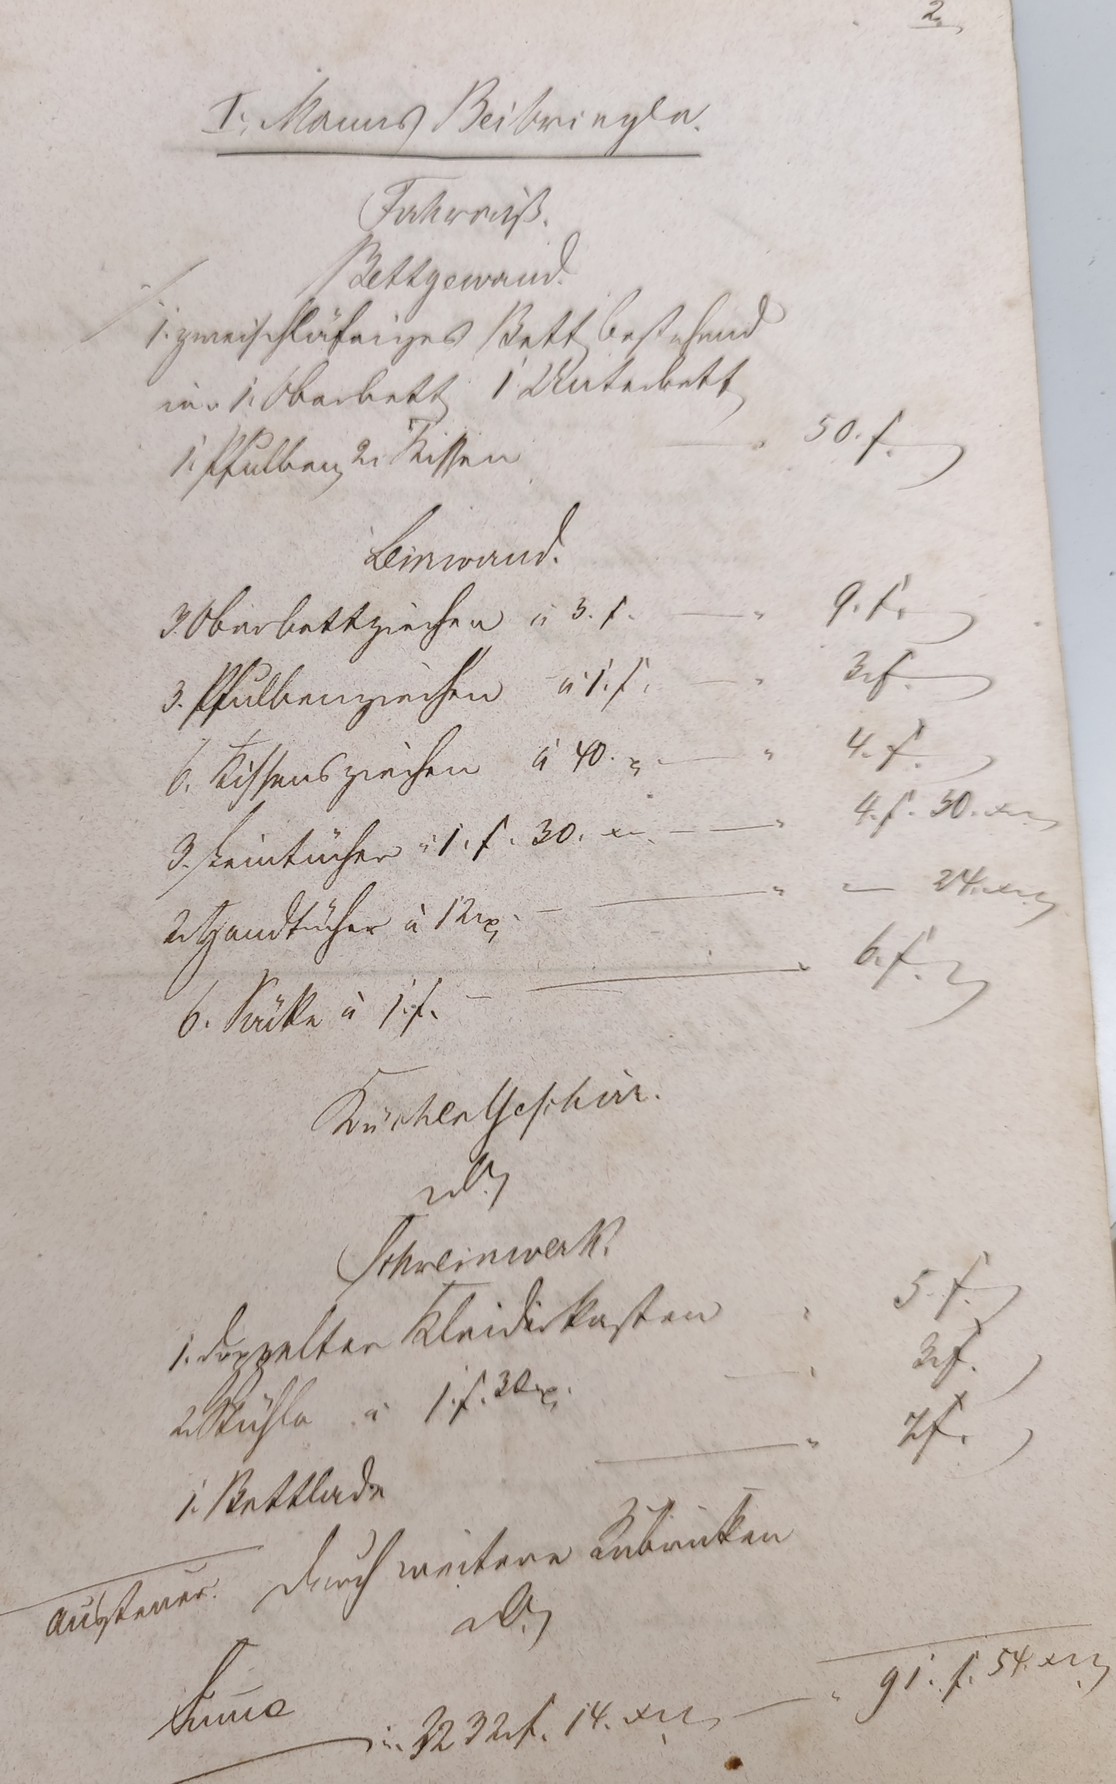 2.
I. Manns Beibringen.
Fahrniß.
Bettgewand.
1. zweischläfriges Bett bestehend
in 1. Oberbett 1 Unterbett
1. Pfulben, 2. Kissen — " 50. f.
Leinwand.
3. Oberbettziechen à 3. f. — " 9. f.
3. Pfulbenziechen à 1. f. — " 3. f.
6. Kissensziechen à 40. x. — " 4. f.
3. Leintücher à 1. f. 30. xr. — " 4. f. 30. xr.
2. Handtücher à 12 x. — " — 24. xr.
6. Säke à 1. f. — " 6. f.
Küchen Geschirr.
Schreinwerk.
1. doppelter Kleiderkasten " 5. f.
2. Stühle à 1. f. 30 x. — " 3. f.
1. Bettlade — " 7 f.
Aussteuer. Durch weitere Rubriken
Summa
3232 f. 14. xr. — " 91. f. 54. xr.